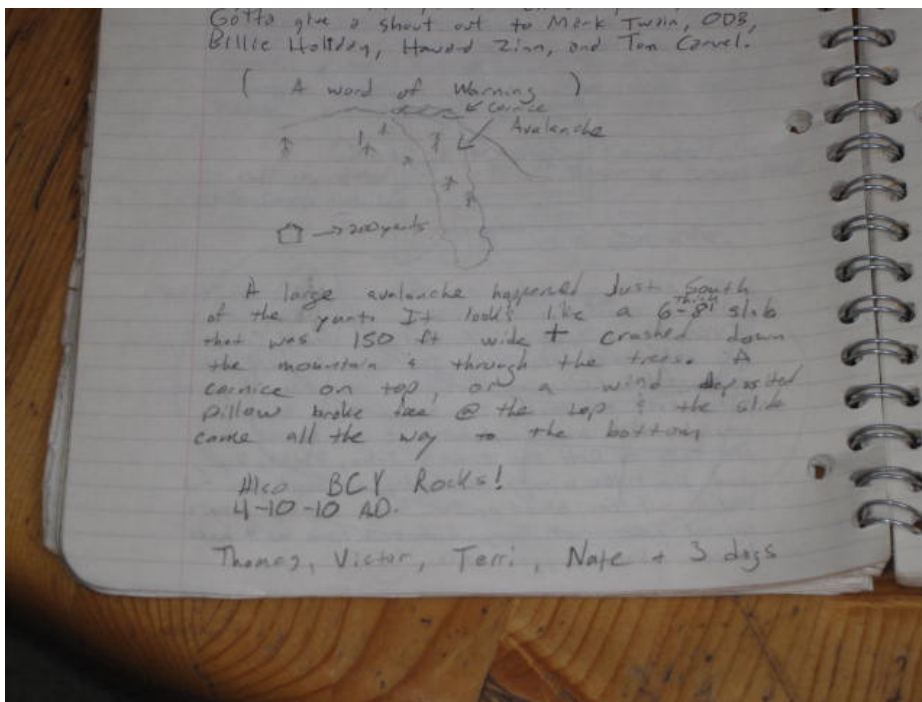 Gotta give a shout out to Mark Twain, ODB,
Billie Holiday, Howard Zinn, and Tom Carvel.
( A word of Warning )
Cornice
Avalanche
→ 200 yards
A large avalanche happened Just South
of the yurt. It looks like a 6-8' thick slab
that was 150 ft wide + crashed down
the mountain & through the trees. A
cornice on top, or a wind deposited
pillow broke free @ the top & the slide
came all the way to the bottom
Also BCY Rocks!
4-10-10 AD.
Thomas, Victor, Terri, Nate + 3 dogs